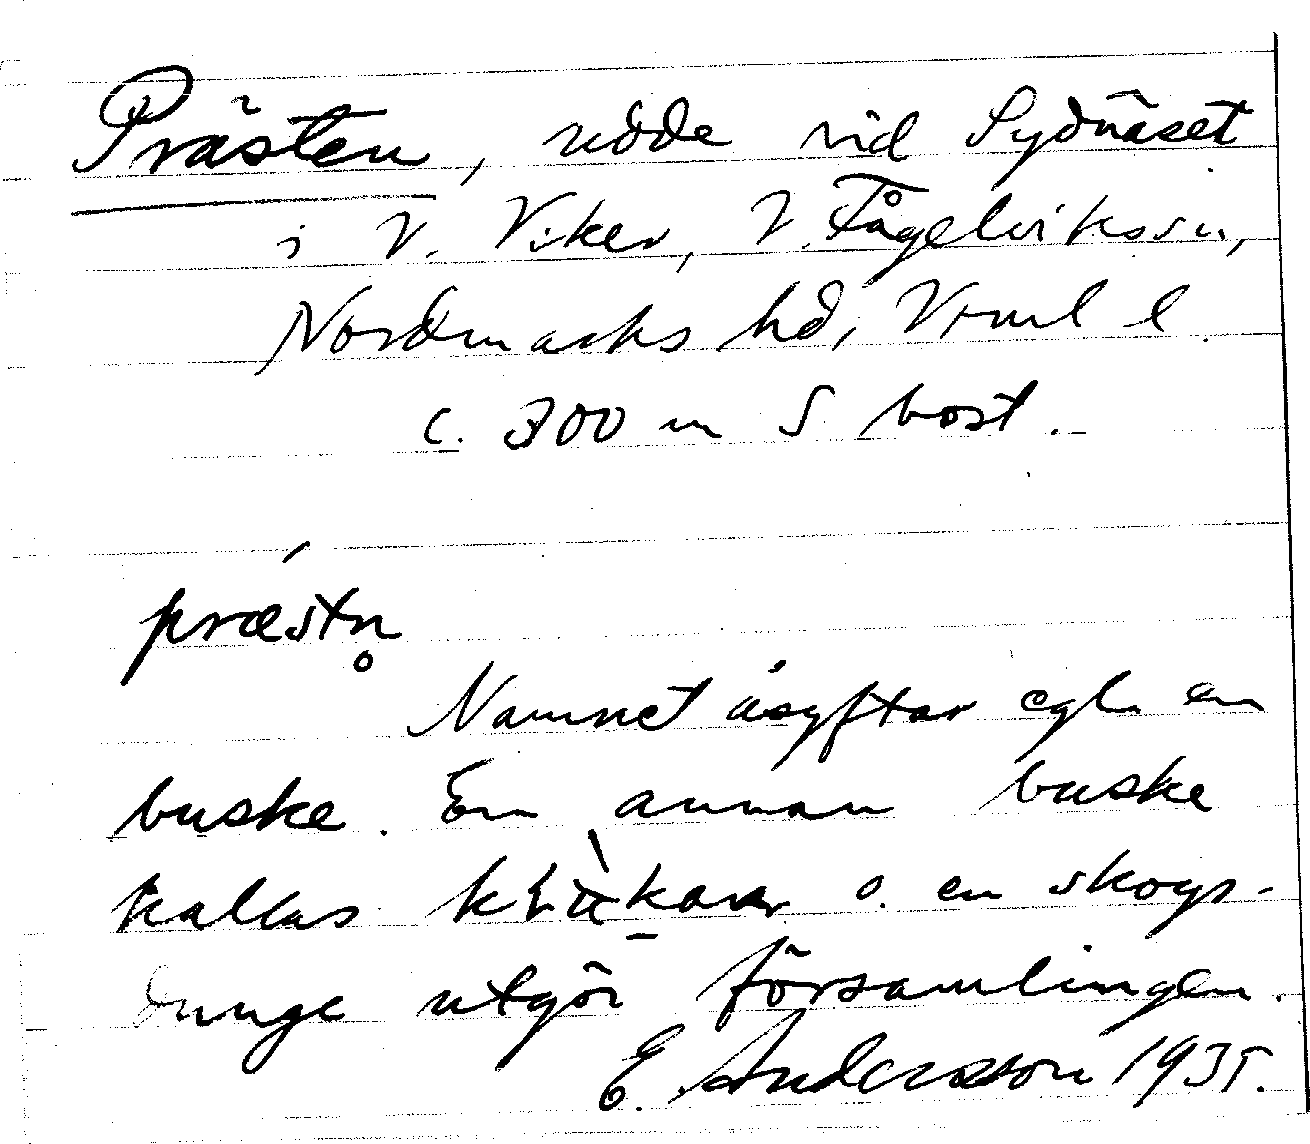 Prästen, udde vid Sydnäset
i V. Viker, V. Fågelvikssn,
Nordmarks hd, Vrml l.
c. 300 m S bost.
præstn̥
Namnet åsyftar egtl. en
buske. En annan buske
kallas o. en skogs-
dunge utgör församlingen.
E. Andersson 1935.